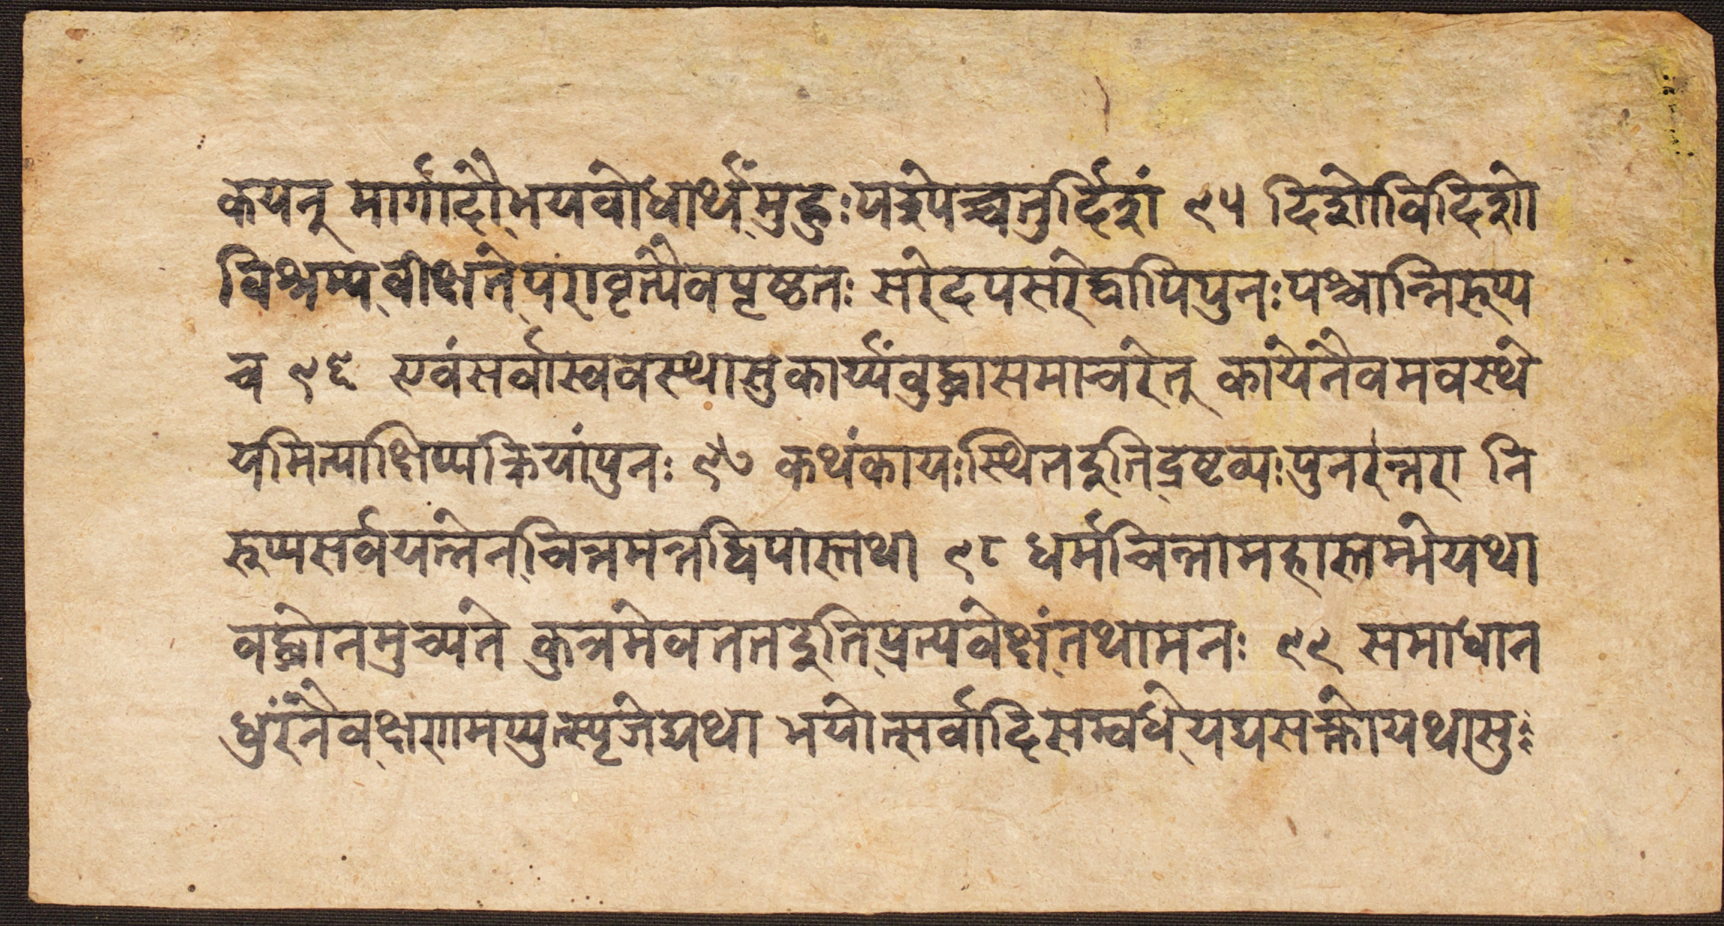 कयन् मार्गादौ भयवोधार्थं मुहुः पश्येच्चतुर्दिशं ९५ दिशोविदिशो
विश्रम्यवीक्षेतपरावृत्यैवपृष्ठतः सरेदपसरेद्वापिपुनःपश्चान्निरूप्य
च ९६ एवंसर्वास्ववस्थासुकार्य्यंवुद्ध्वासमाचरेत् कायेनैवमवस्थे
यमित्याक्षिप्यक्रियांपुनः ९७ कथंकायःस्थितइतिद्रष्टव्यःपुनरन्तरा नि
रूप्यसर्वयत्नेनचित्तमत्तद्विपास्तथा ९८ धर्मचिन्तामहास्तम्भेयथा
वद्धोनमुच्यते कुत्रमेवततइतिप्रत्यवेक्षंतथामनः ९९ समाधान
धुरंनैवक्षणमप्युत्सृजेद्यथा भयोत्सर्वादिसम्वधेयद्यसक्तोयथासु